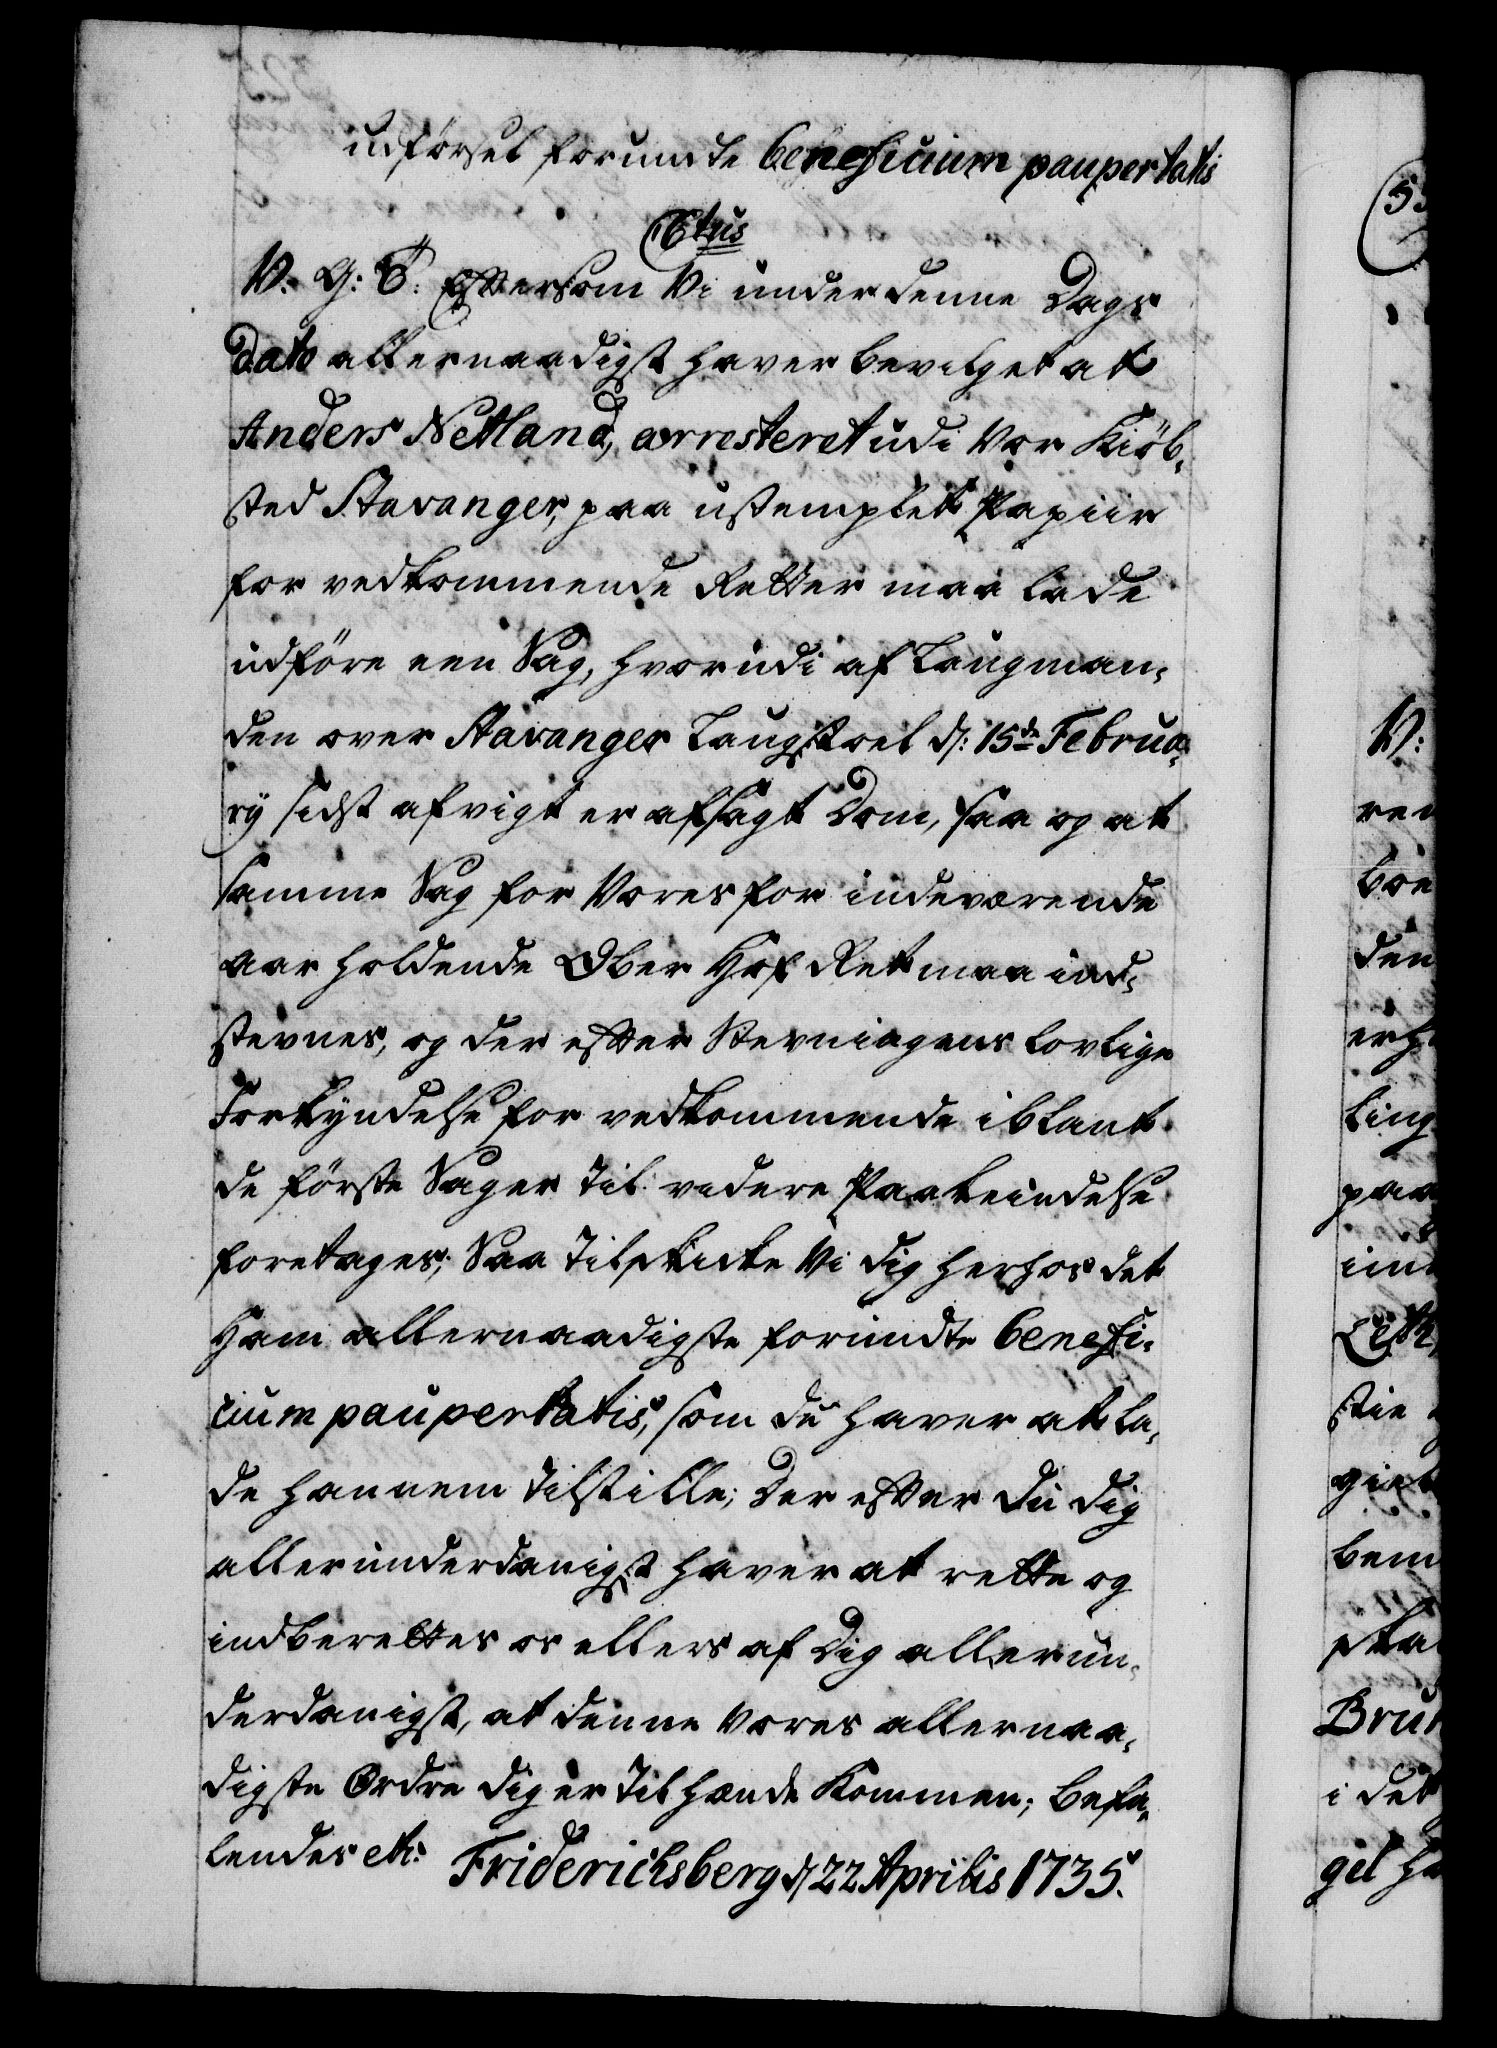 udførsel forundte beneficium paupertatis
C6tus
V. G: T. Eftersom Vi under denne Dags
Dato allernaadigst haver bevilget at
Anders Netland, arresteret udi Vor Kiöb,
sted Stavanger, paa ustemplet Papiir
for vedkommende Retter maa lade
udföre een Sag, hvorudi af Laugman,
den over Stavanger Laugstoel d: 15de Februa,
rÿ sidst afvigt er afsagt Dom, saa og at
samme Sag for Vores for indeværende
aar holdende Ober Hof Ret maa ind,
stevnes, og der efter Stevningens lovlige
Forkyndelse for vedkommende iblant
de förste Sager til videre Paakiendelse
foretages; Saa tilskicke Vi dig herhos det
Ham allernaadigste forundte benefi,
cium paupertatis, som du haver at la,
de hannem tilstille; Der efter du dig
allerunderdanigst haver at rette og
indberettes os ellers af Dig allerun,
derdanigst, at denne Vores allernaa,
digste Ordre dig er til hænde kommen; Befa,
lendes etc: Friderichsberg d 22 Aprilis 1735.